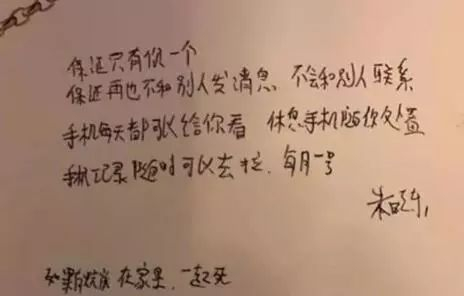 保证只有你一个
保证再也不和别人发消息 不会和别人联系
手机每天都可以给你看 休息手机随你处置
手机记录随时可以去拉. 每月一号
朱
如果 在家里. 一起死